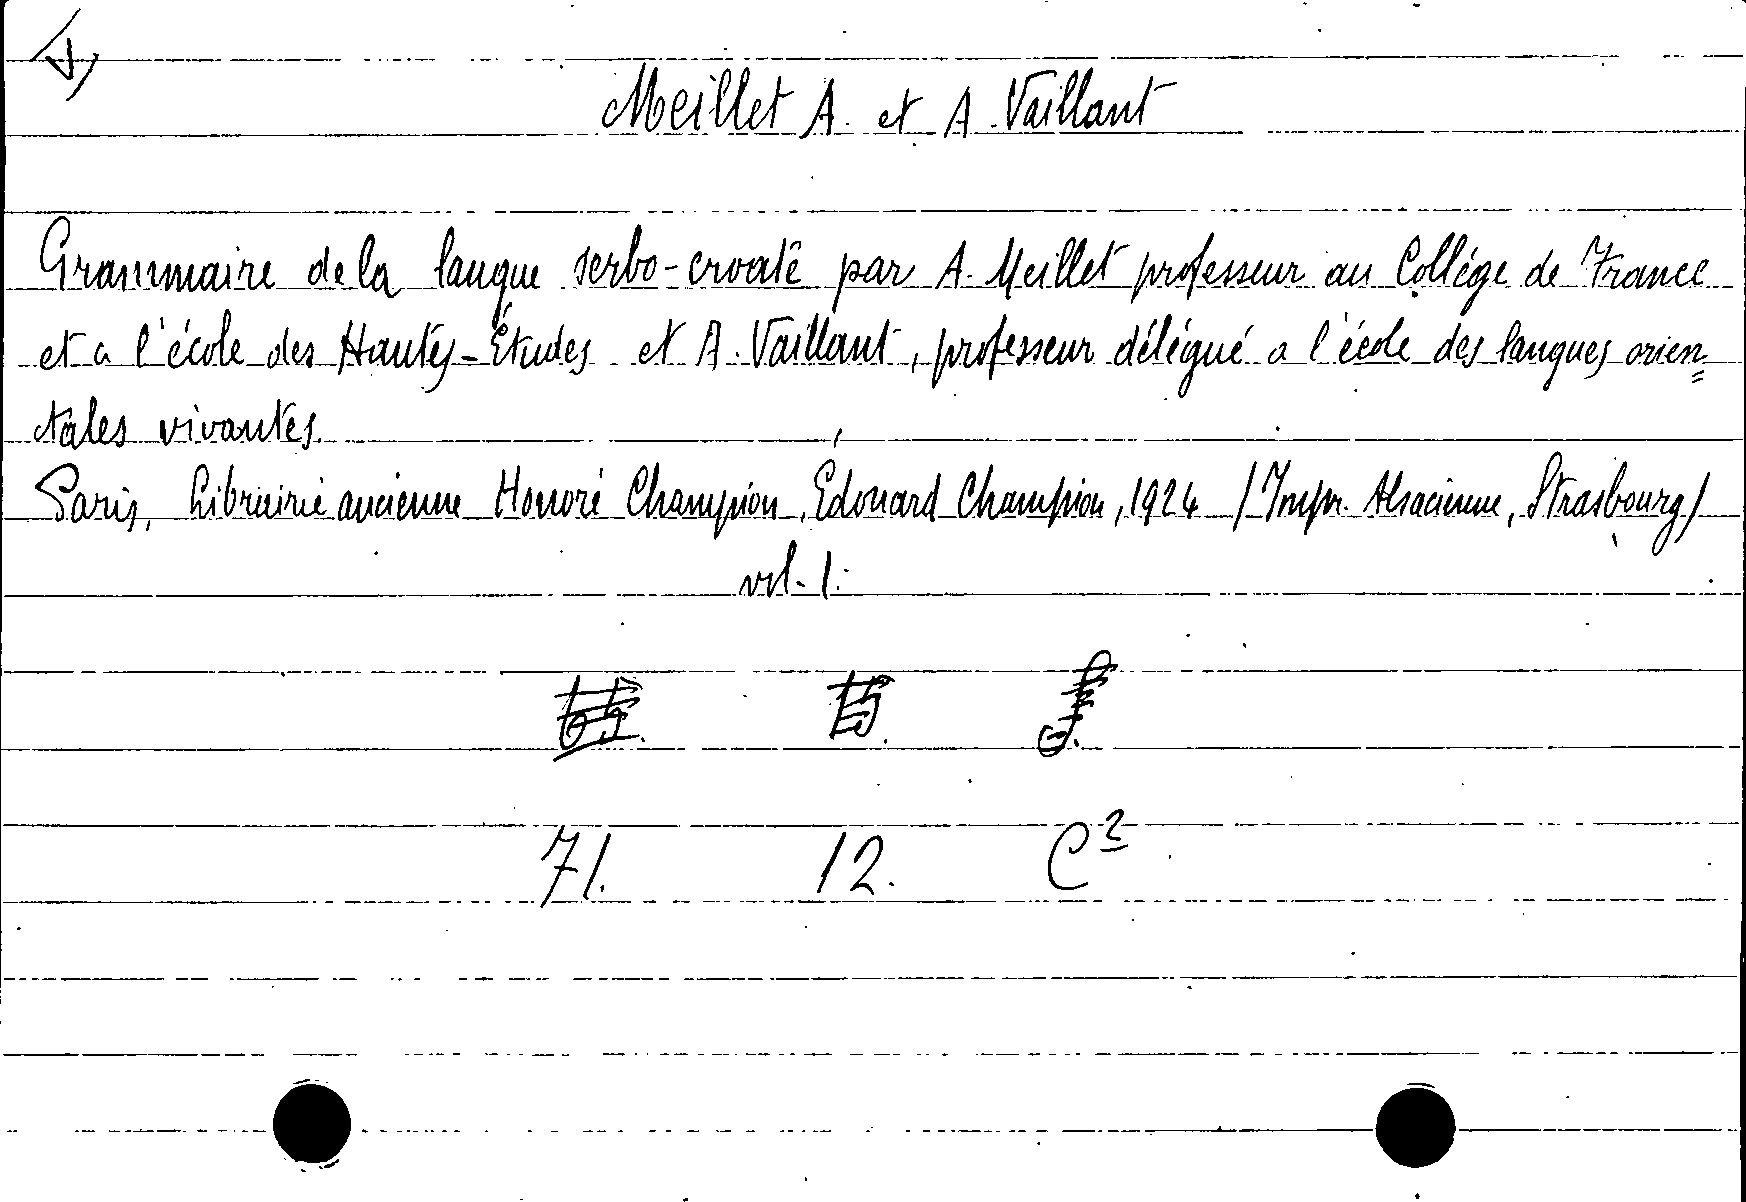 Meillet A. et A. Vaillant
Grammaire de la langue serbo-croate par A. Meillet professeur au Collége de France
et a l'école des Hautes-Études et A. Vaillant, professeur délégué a l'école des langues orien=
tales vivantes.
Paris, Librairie ancienne Honoré Champion, Édouard Champion, 1924 /Impr. Alsacienne, Strasbourg/
vol. 1.
71. 12. C²